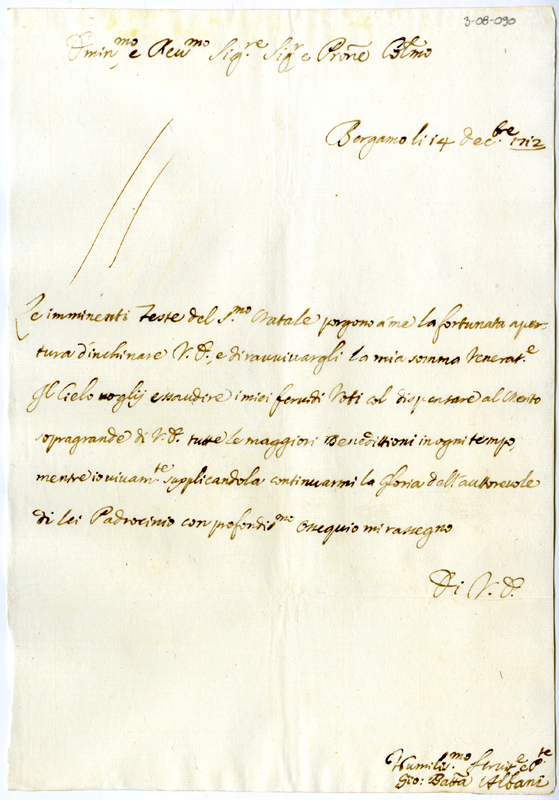 3-08-090
Emin.mo e Reu.mo Sig.re Sig.r e Prone Col.mo
Bergamo li 14 dec.bre 1712
Le imminenti Feste del S.mo Natale porgono a me la fortunata aper-
tura d'inchinare V. E., e di ravvivargli la mia somma Venerat.e
Il Cielo voglij essaudire i miei feruidi Voti col dispensare al Merito
sopragrande di V. E. tutte le maggiori Beneditioni in ogni tempo,
mentre io vivam.te supplicandola continuarmi la Gloria dell'autorevole
di lei Padrocinio con profondis.mo Ossequio mi rassegno
Di V. E.
Humilis.mo
Gio: Batta Albani